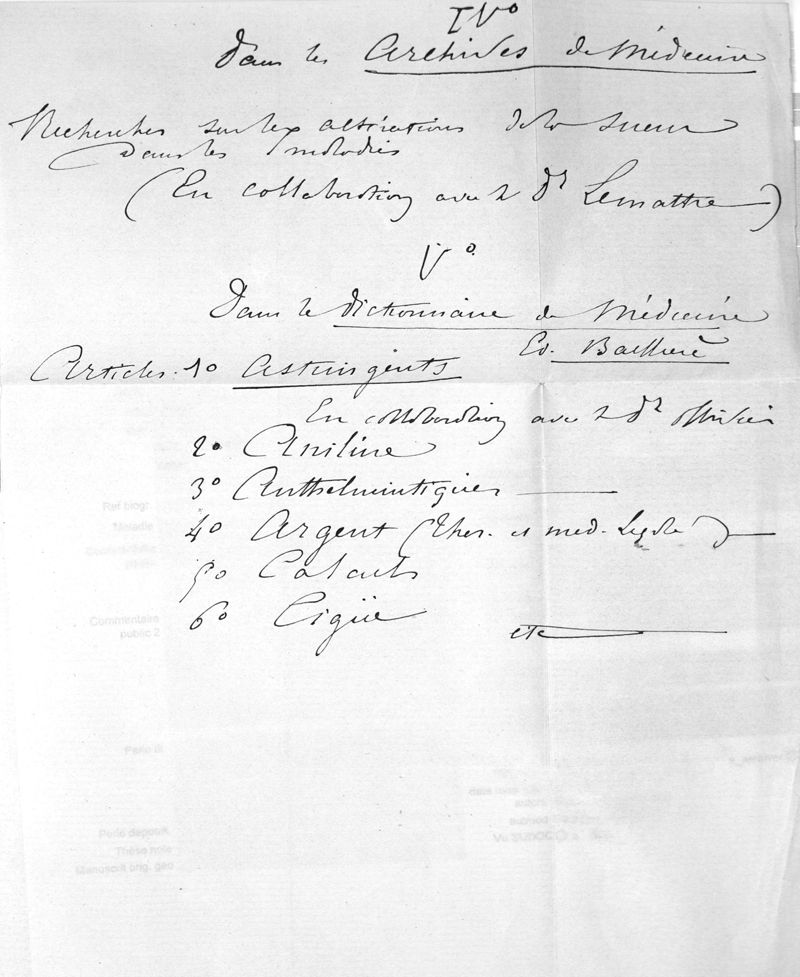 IVº
Dans les Archives de Médecine
Recherches sur les altérations de la sueur
dans les maladies
(En collaboration avec le Dr Lemattre)
Vº
Dans le dictionnaire de Médecine
Ed. Baillière
Articles. 1º Astringents
En collaboration avec le Dr
2º Aniline
3º Anthelmintiques
4º Argent (Ther. et med. Légale)
5º Calculs
6º Cigüe
etc
Ref biogr.
Maladie
Commentaire
public 2
Perio deposit.
Thèse note
Manuscrit orig. geo